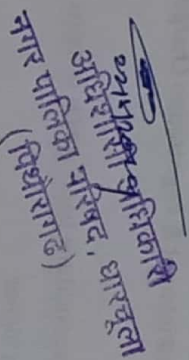 अधिशासी अधिकारी
नगर पालिका परिषद, धारचूला
(पिथौरागढ)